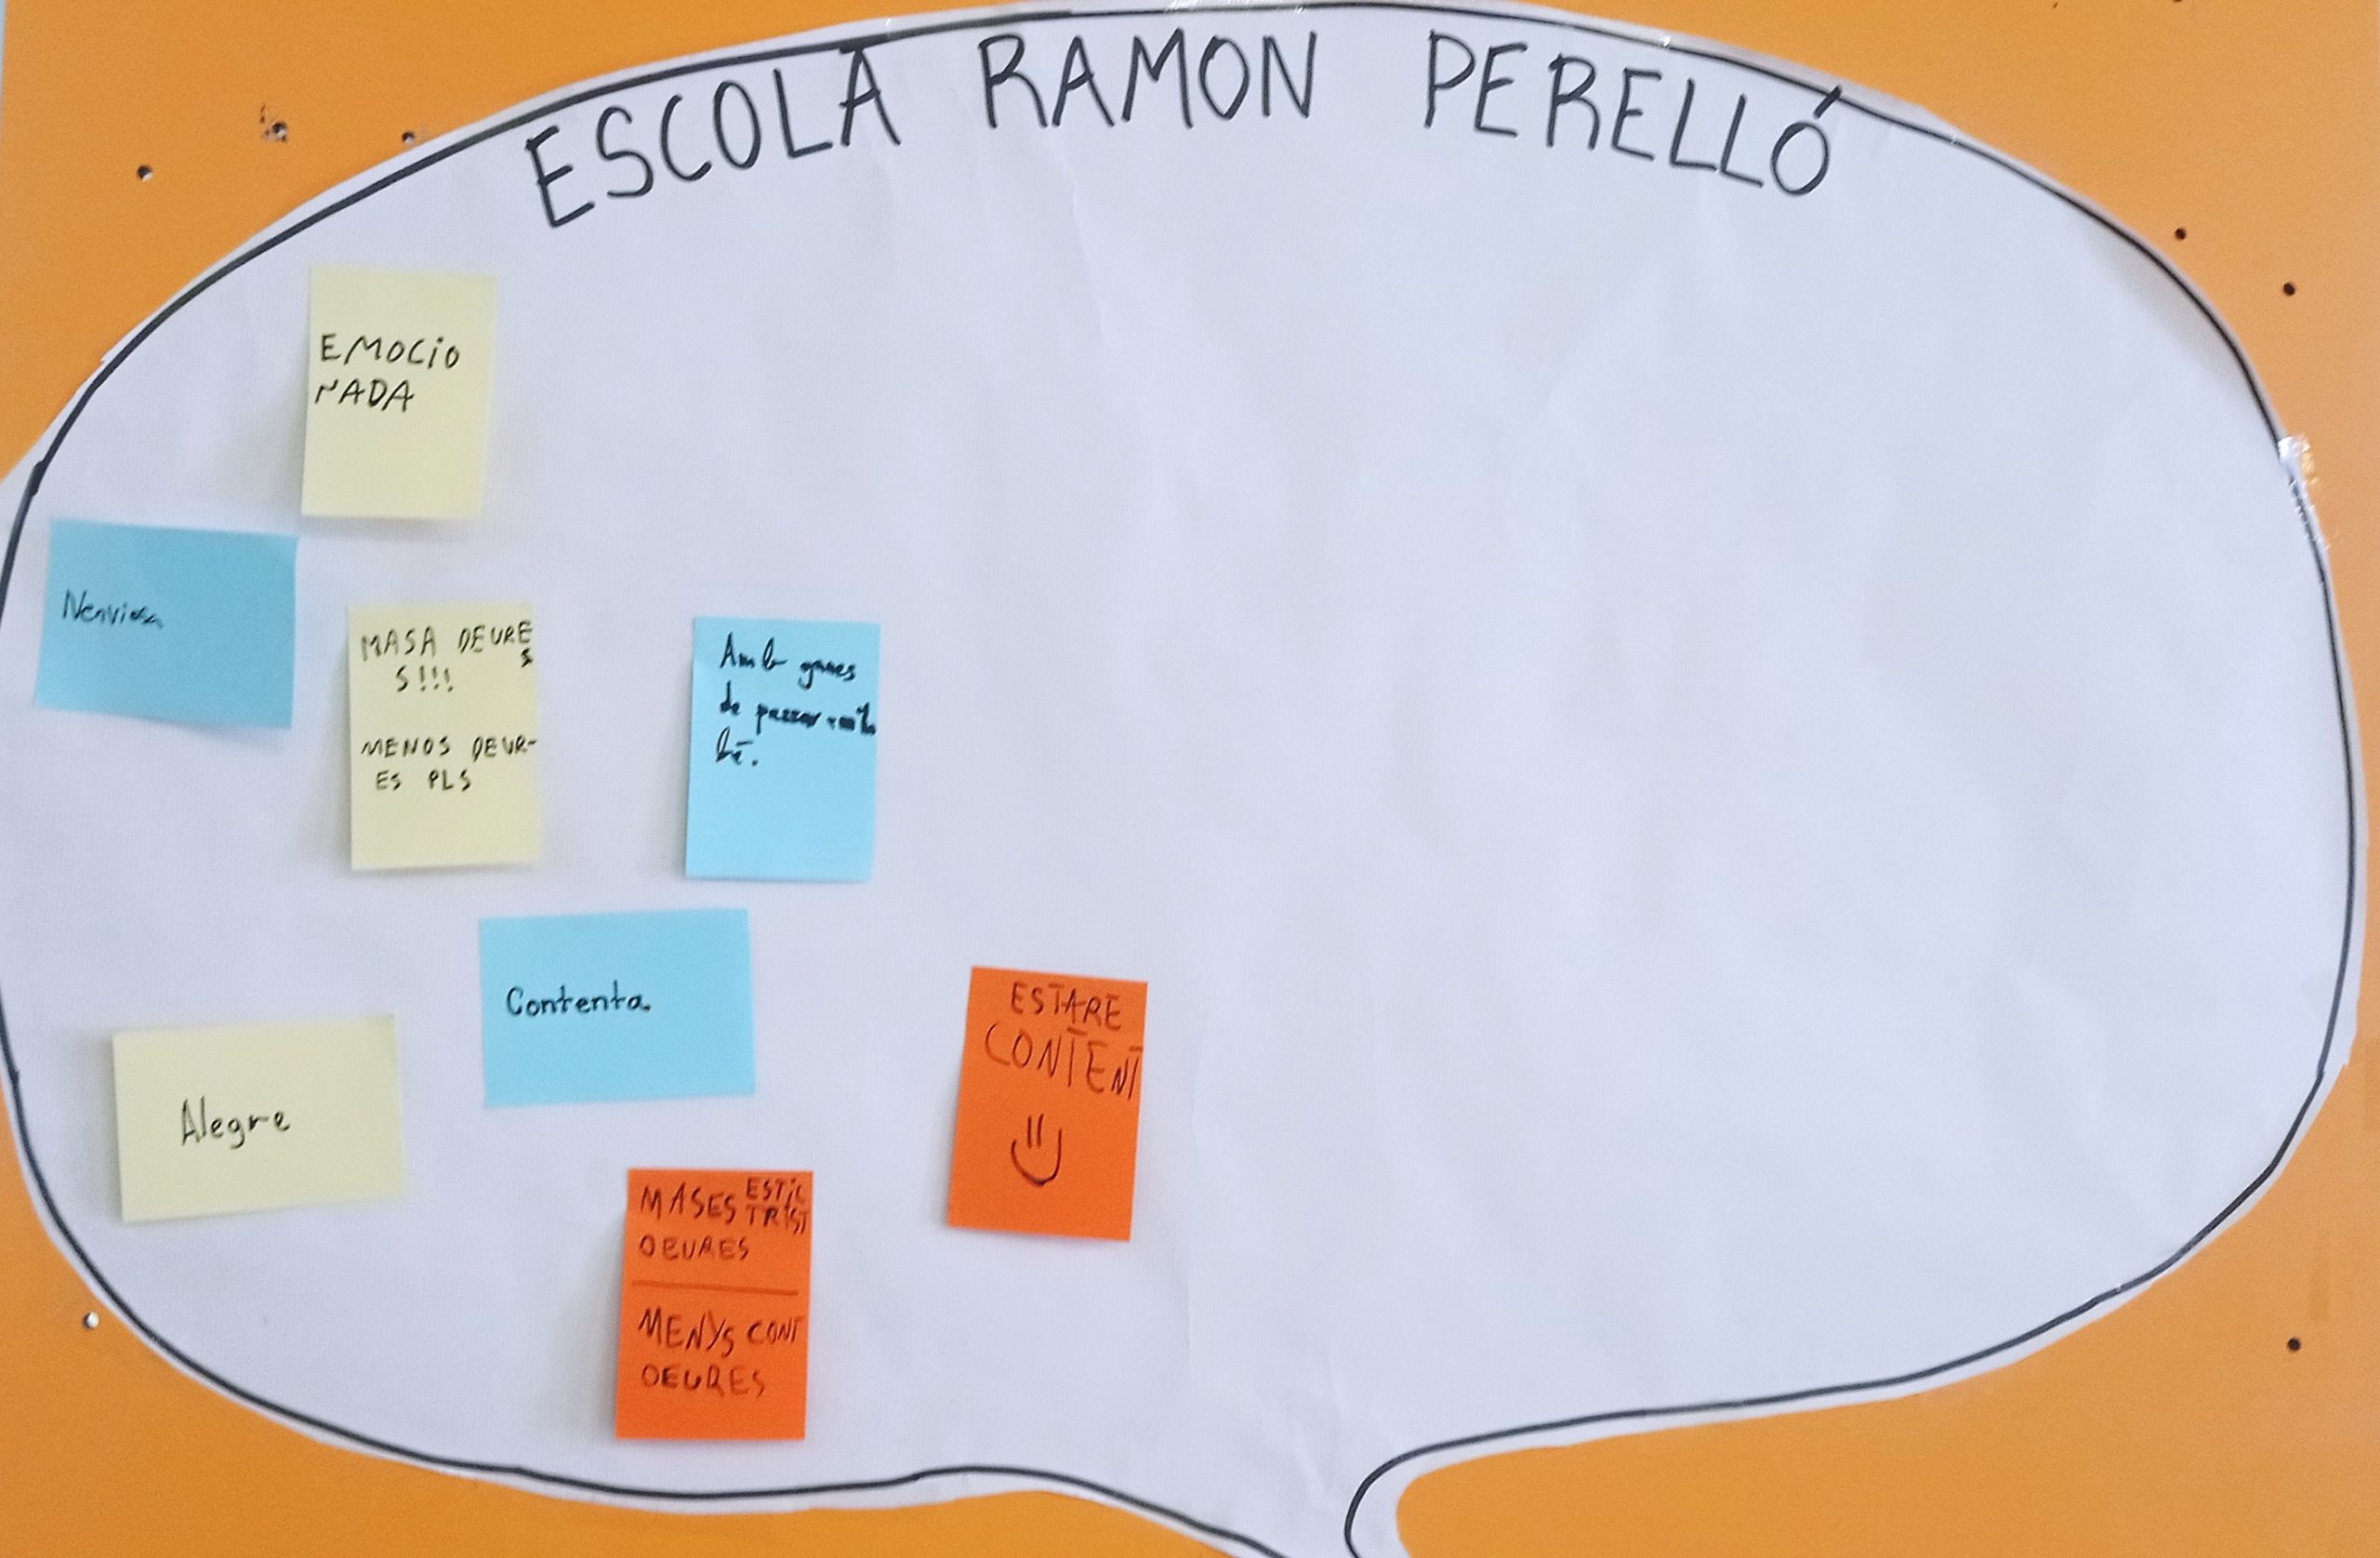 ESCOLA RAMON PERELLÓ
EMOCIO
NADA
Nerviosa
MASA DEURE
S
S!!!
MENOS DEUR-
ES PLS
Amb ganes
de passar-m'ho
bé.
Contenta
Alegre
ESTARE
CONTENT
MASES ESTIC
TRIST
DEURES
MENYS CONT
DEURES